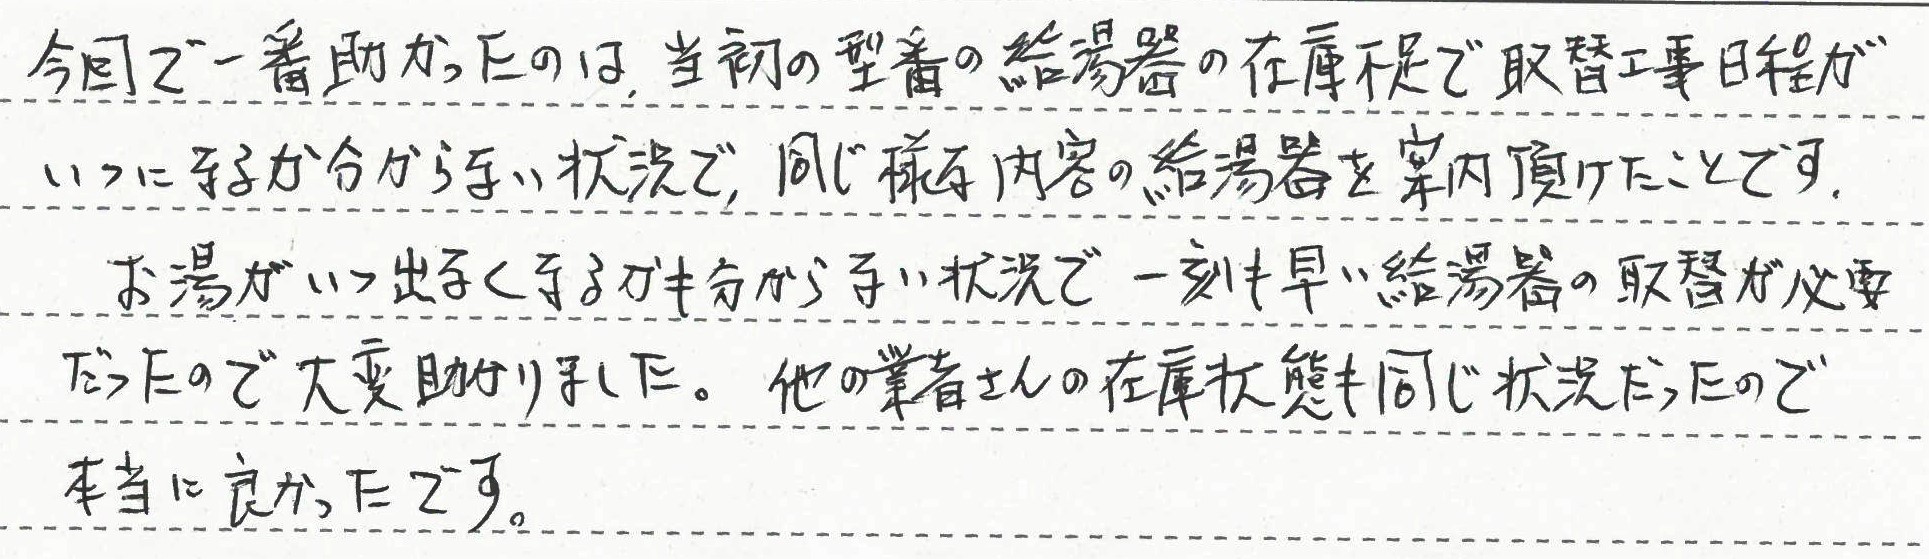 今回で一番助かったのは、当初の型番の給湯器の在庫不足で取替工事日程が
いつになるか分からない状況で、同じ様な内容の給湯器を案内頂けたことです。
お湯がいつ出なくなるかも分からない状況で一刻も早い給湯器の取替が必要
だったので大変助かりました。他の業者さんの在庫状態も同じ状況だったので
本当に良かったです。